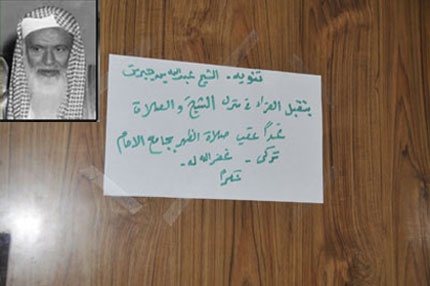 تنويه - الشيخ عبدالله بن جبرين
يتقبل العزاء في منزل الشيخ والصلاة
غداً عقب صلاة الظهر بجامع الامام
تركي - غفر الله له -
شكراً